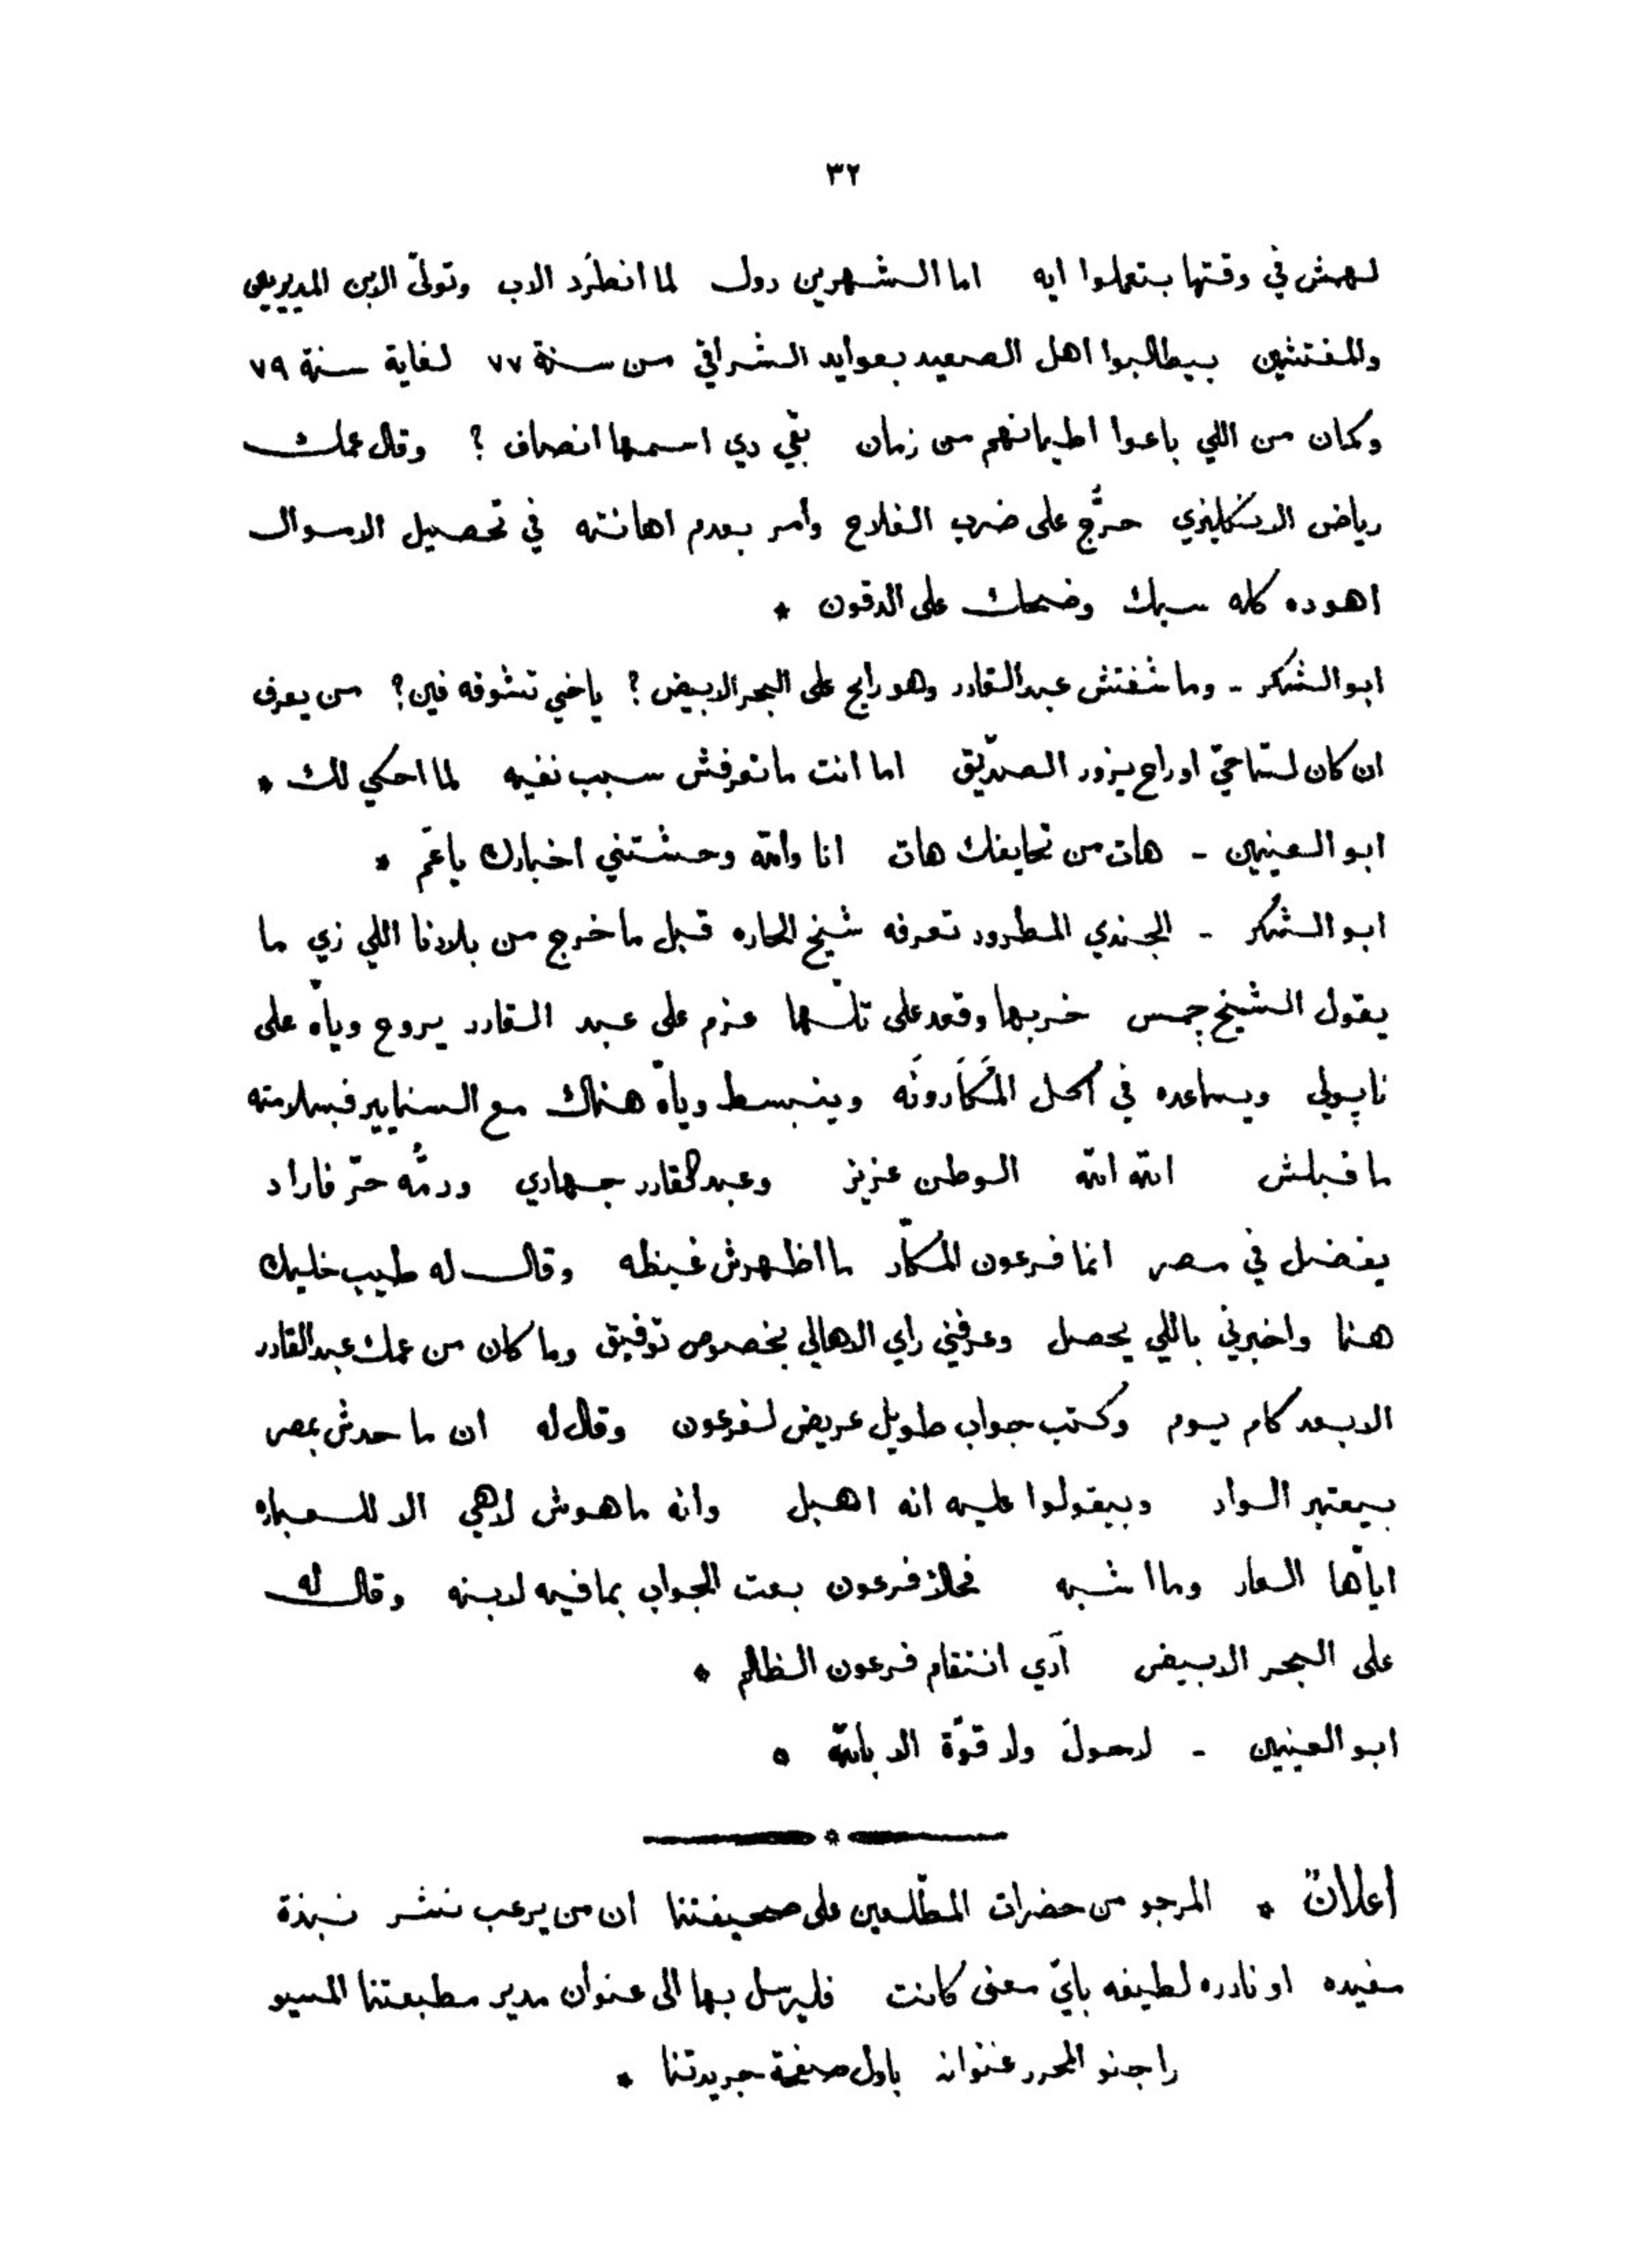 ٣٢
لهمش في وقتها بتعملوا ايه اما الشهرين دول لما انطرد الاب وتولّى الابن المديريين
والمفتشين بيطالبوا اهل الصعيد بعوايد الشراقي من سنة ٧٧ لغاية سنة ٧٩
وكمان من اللي باعوا اطيانهم من زمان بقي دي اسمها انصاف ؟ وقال عمك
رياض الانكليزي حرّج على ضرب الفلاح وأمر بعدم اهانته في تحصيل الاموال
اهوده كله سبك وضحك على الدقون *
ابو الشكر - وما شفتش عبد القادر وهو رايح على البحر الابيض ؟ ياخي تشوفه فين ؟ من يعرف
ان كان لسّاحيّ او راح يزور الصدّيق اما انت ما تعرفش سبب نفيه لما احكي لك *
ابو العينين - هات من تحايفك هات انا والله وحشتني اخبارك ياعمّ *
ابو الشكر - الجندي المطرود تعرفه شيخ الحاره قبل ما خرج من بلادنا اللي زي ما
يقول الشيخ چمس خربها وقعد على تلّها عزم على عبد القادر يروح وياه على
ناپولي ويساعده في اكل المكَارونَه وينبسط وياه هناك مع السنايير فبسلامته
ما قبلش الله الله الوطن عزيز وعبد القادر جهادي ودمُّه حرّ فاراد
يفضل في مصر انما فرعون المكّار ما اظهرش غيظه وقال له طيب خليك
هنا واخبرني باللي يحصل وعرفني راي الاهالي بخصوص توفيق وما كان من عمك عبد القادر
الا بعد كام يوم وكتب جواب طويل عريض لفرعون وقال له ان ما حدش بمصر
بيعتبر الواد وبيقولوا عليه انه اهبل وانه ما هوش لاهي الا للعباره
اياها العار وما اشبه فحلا فرعون بعت الجواب بما فيه لابنه وقال له
على البحر الابيض آدي انتقام فرعون الظالم *
ابو العينين - لاحولَ ولا قوّة الا بالله *
اعلانٌ * المرجو من حضرات المطّلعين على صحيفتنا ان من يرغب نشر نبذة
مفيده او نادره لطيفه بايّ معنى كانت فليرسل بها الى عنوان مدير مطبعتنا المسيو
راجنو المحرر عنوانه باول صفحة جريدتنا *